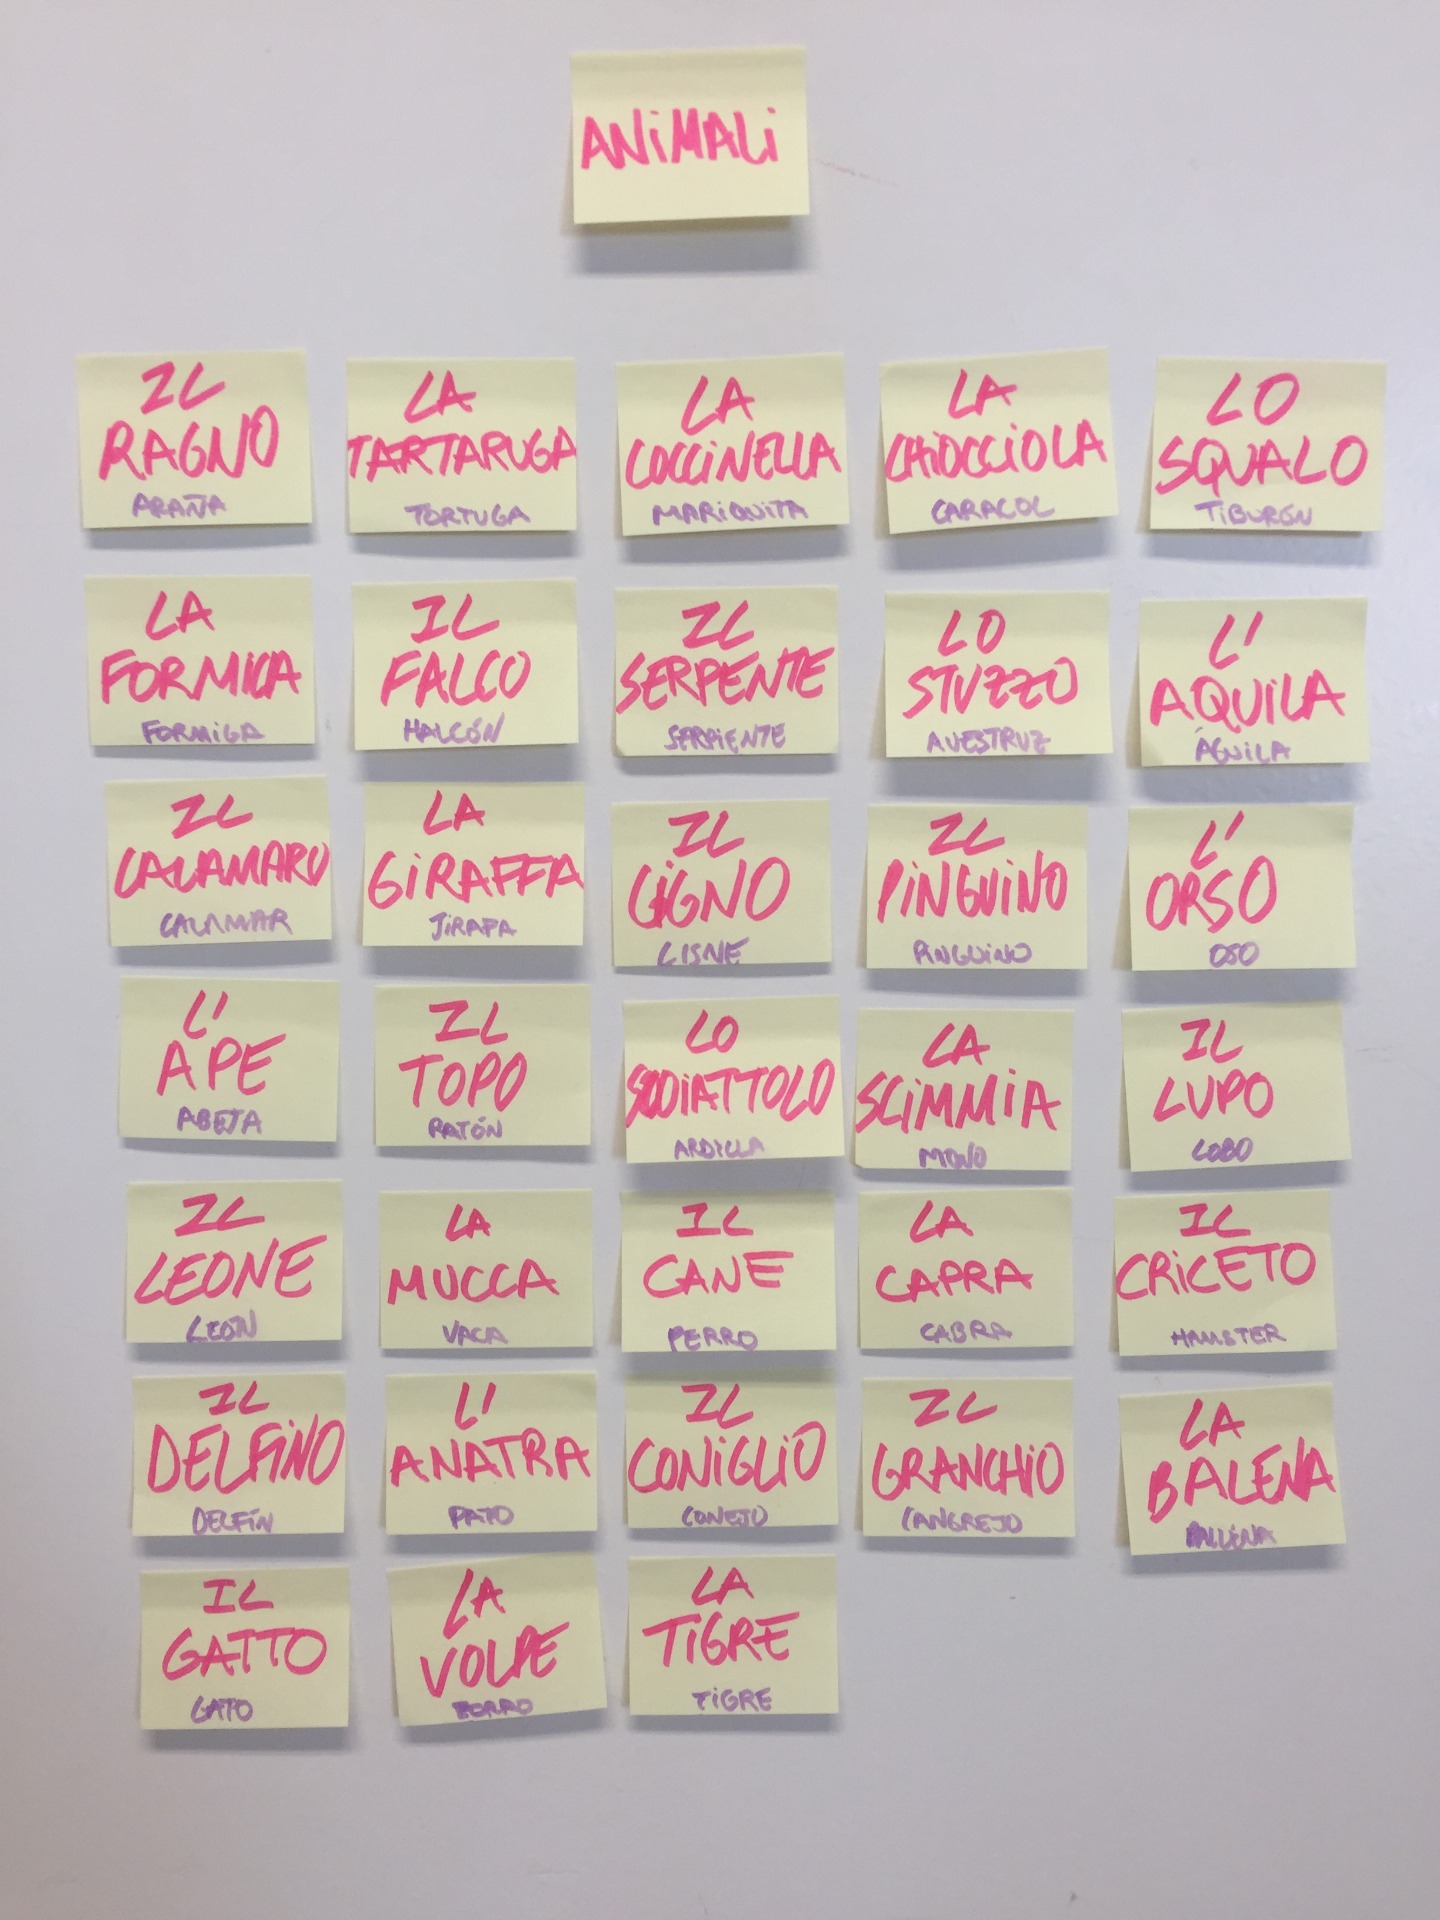 ANiMALi
IL
RAGNO
ARAÑA
LA
TARTARUGA
TORTUGA
LA
COCCiNELLA
MARiQUiTA
LA
CHiOCCiOLA
CARACOL
LO
SQUALO
TiBURÓN
LA
FORMICA
FORMiGA
IL
FALCO
HALCÓN
IL
SERPENTE
SERPiENTE
LO
STUZZO
AVESTRUZ
L'
AQUiLA
ÁGUiLA
IL
CALAMARO
CALAMAR
LA
GiRAFFA
JiRAFA
IL
CiGNO
CISNE
IL
PiNGUiNO
PiNGUiNO
L'
ORSO
OSO
L'
APE
ABEJA
IL
TOPO
RATÓN
LO
ARDiLLA
LA
SCiMMiA
MONO
IL
LUPO
LOBO
IL
LEONE
LEÓN
LA
MUCCA
VACA
IL
CANE
PERRO
LA
CAPRA
CABRA
IL
CRiCETO
HAMSTER
IL
DELFiNO
DELFíN
L'
ANATRA
PATO
IL
CONiGLiO
CONEJO
IL
GRANCHiO
CANGREJO
LA
BALENA
BALLENA
IL
GATTO
GATO
LA
VOLPE
ZORRO
LA
TiGRE
TiGRE